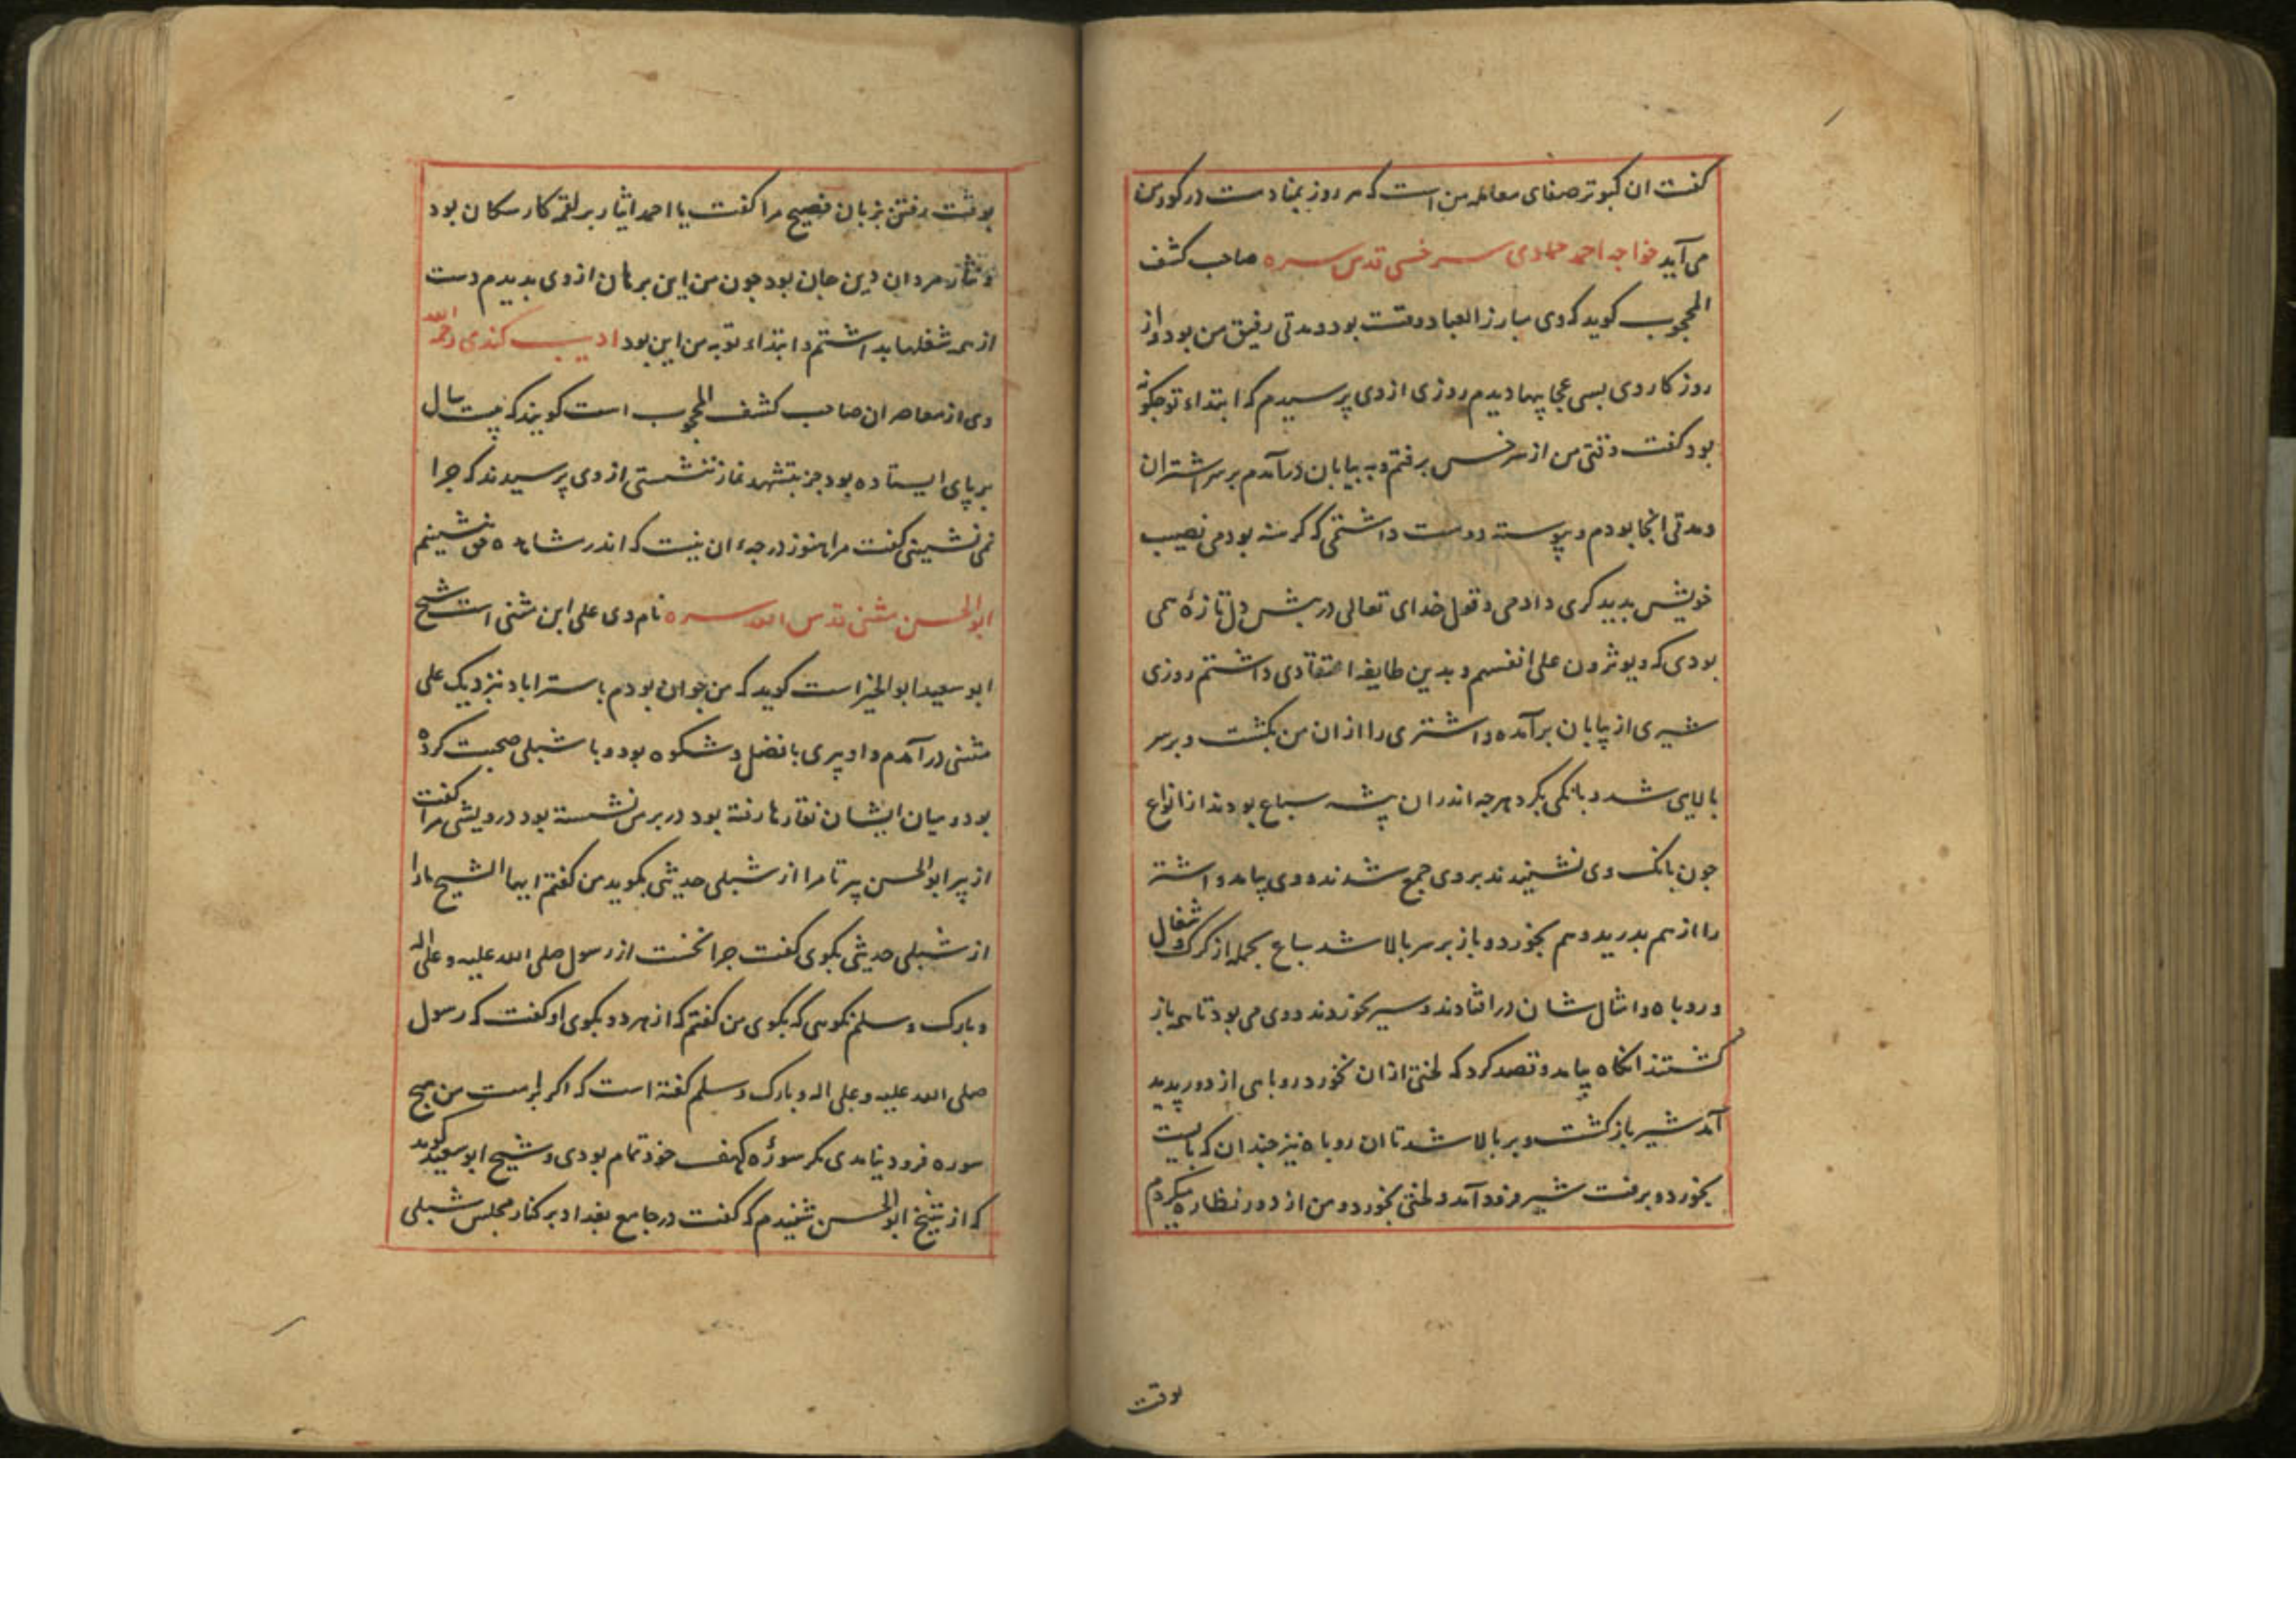 کفت ان کبوتر صفای معامله من است که هر روز بمنادمت در کور من
می آید خواجه احمد حمادی سرخسی قدس سره صاحب کشف
المحجوب کوید که وی مبارز العباد وقت بود و مدتی رفیق من بود و از
روزکار وی بسی عجایبها دیدم روزی از وی پرسیدم که ابتداء تو چکونه
بود کفت وقتی من از سرخس برفتم و به بیابان درآمدم بر سر اشتران
و مدتی انجا بودم و پیوسته دوست داشتمی که کرسنه بودمی نصیب
خویش بدیکری دادمی و قول خدای تعالی در پیش دل تازه همی
بودی که و یوثرون علی انفسهم و بدین طایفه اعتقادی داشتم روزی
شیری از بیابان برآمده و اشتری را از ان من بکشت و بر سر
بالایی شد و بانکی بکرد هرچه اندران پیشه سباع بودند از انواع
چون بانک وی نشیندند بر وی جمع شدند و وی بیامد و اشتر
را از هم بدرید و هم بخورد و باز بر سر بالا شد سباع بجمله از کرک و شغال
و روباه و امثال شان در افتادند و سیر بخوردند و وی می بود تا همه باز
کشتند انکاه بیامد و قصد کرد که لختی از ان بخورد روباهی از دور پدید
آمد شیر بازکشت و بر بالا شد تا ان روباه نیز چندان که بایست
بخورد و برفت شیر فرود آمد و لختی بخورد و من از دور نظاره میکردم
بوقت
بوقت رفتن بزبان فصیح مرا کفت یا احمد ایثار بر لقمه کار سکان بود
و نثار مردان دین جان بود چون من این برهان از وی بدیدم دست
از همه شغلها بداشتم و ابتداء توبه من این بود ادیب کندی رحمه الله
وی از معاصران صاحب کشف المحجوب است کویند که بیست سال
بر پای ایستاده بود جز بتشهد نماز ننشستی از وی پرسیدند که چرا
نمی نشینی کفت مرا هنوز درجهء ان نیست که اندر مشاهده حق بنشینم
ابوالحسن مثنی قدس الله سره نام وی علی ابن مثنی است شیخ
ابو سعید ابوالخیر است کوید که من جوان بودم باستراباد نزدیک علی
مثنی درآمدم و او پیری با فضل و شکوه بود و با شبلی صحبت کرده
بود و میان ایشان نقارها رفته بود در برش نشسته بود درویشی مرا کفت
از پیر ابوالحسن پرس تا مرا از شبلی حدیثی بکوید من کفتم ایها الشیخ مارا
از شبلی حدیثی بکوی کفت چرا نخست از رسول صلی الله علیه و علی اله
و بارک و سلم نکوهی که بکوی من کفتم که از هردو بکوی او کفت که رسول
صلی الله علیه و علی اله و بارک و سلم کفته است که اکر بر امت من هیچ
سوره فرود نیامدی مکر سورهٔ کهف خود تمام بودی و شیخ ابو سعید کوید
که از شیخ ابوالحسن شنیدم که کفت در جامع بغداد بر کنار مجلس شبلی